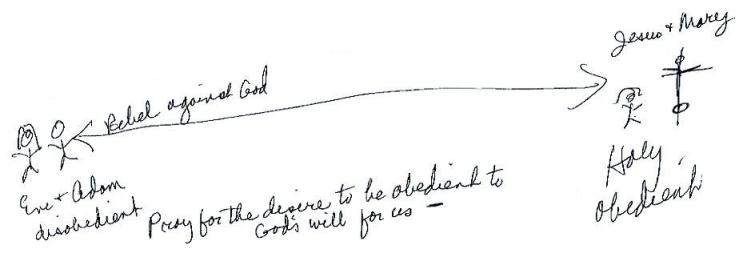 Jesus + Mary
Rebel against God
Eve + Adam
disobedient
Pray for the desire to be obedient to
God's will for us –
Holy
obedient